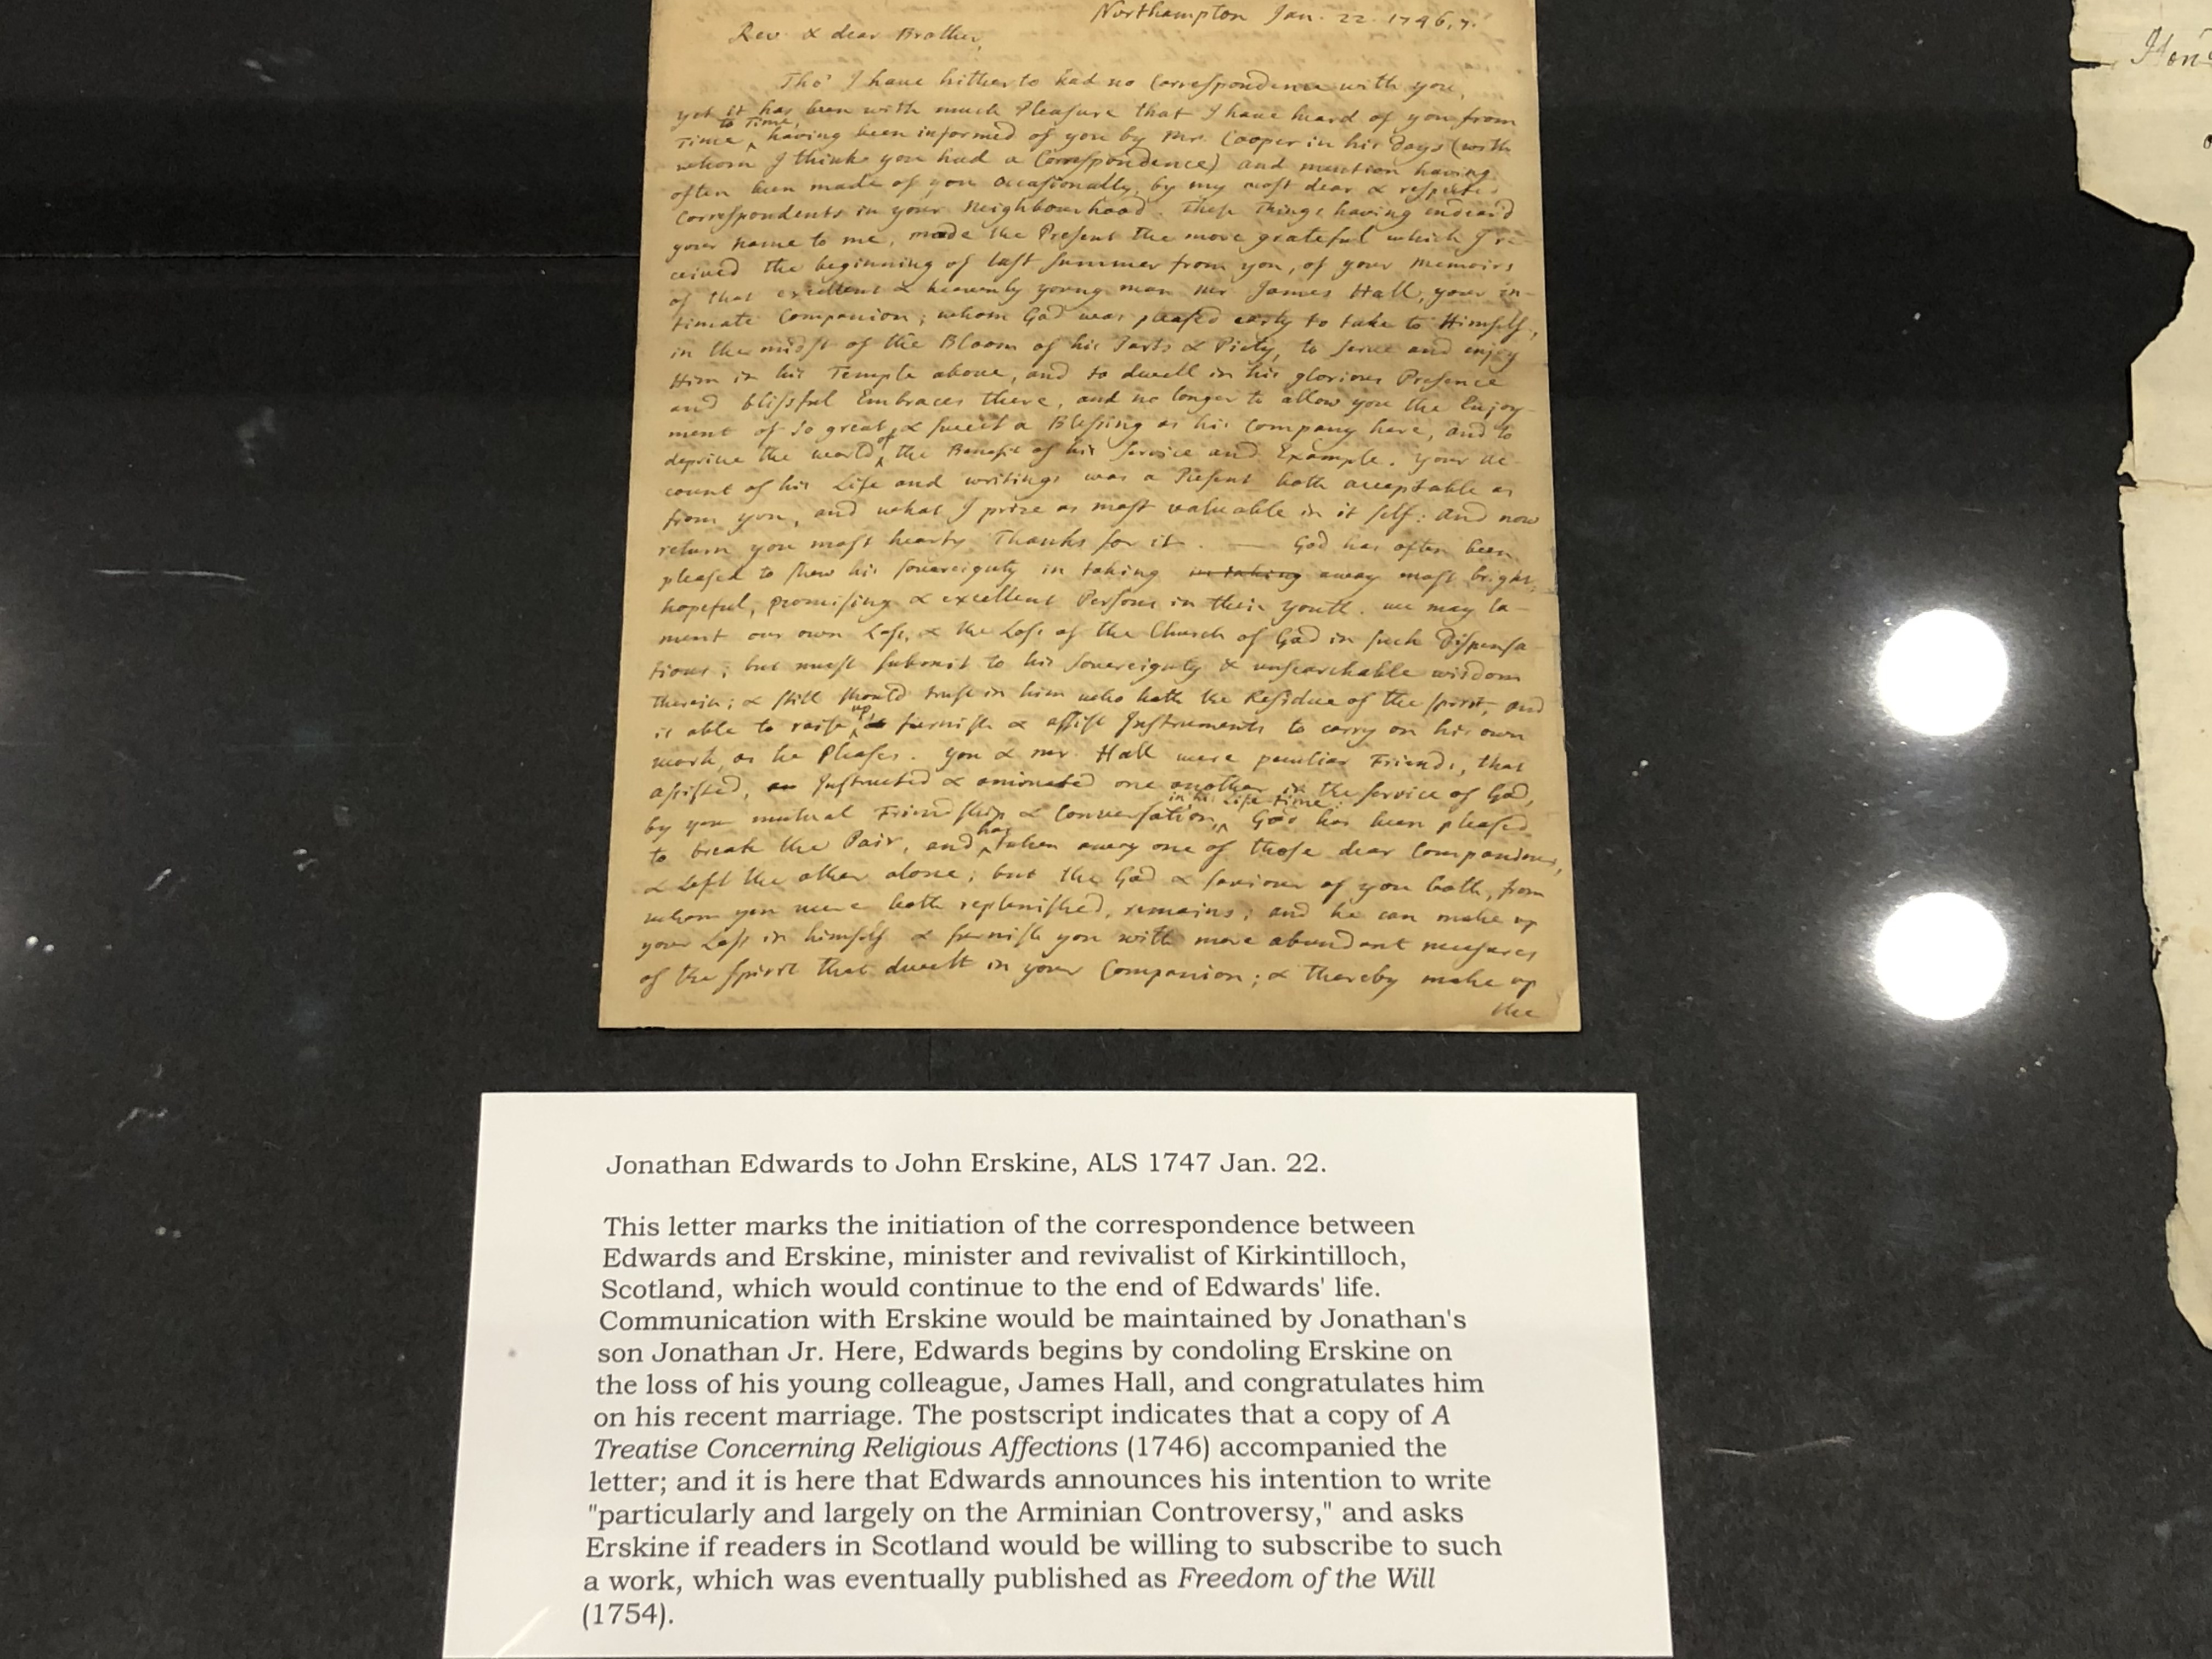 Northampton Jan. 22. 1746,7.
Rev. & dear Brother,
Tho' I have hitherto had no Correspondence with you,
yet it has been with much Pleasure that I have heard of you from
to Time,
Time ‸ having been informed of you by Mr. Cooper in his days (with
whom I think you had a Correspondence) and mention having
often been made of you occasionally, by my most dear & respected
Correspondents in your Neighbourhood. These Things having endear'd
your name to me, made the Present the more grateful which I re-
ceived the beginning of last summer from you, of your Memoirs
of that excellent & heavenly young man Mr James Hall, your in-
timate Companion; whom God was pleased early to take to Himself,
in the midst of the Bloom of his Parts & Piety, to serve and enjoy
Him in his Temple above, and to dwell in his glorious Presence
and blissful Embraces there, and no longer to allow you the Enjoy-
ment of so great & sweet a Blessing as his Company here, and to
of
deprive the world ‸ the Benefit of his Service and Example. Your ac-
count of his Life and writings was a Present both acceptable as
from you, and what I prize as most valuable in it self: And now
return you most hearty Thanks for it. — God has often been
pleased to shew his sovereignty in taking in taking away most bright,
hopeful, promising & excellent Persons in their youth. we may la-
ment our own Loss, & the Loss of the Church of God in such Dispensa-
tions; but must submit to his sovereignty & unsearchable wisdom
therein; & still should trust in him who hath the Residue of the spirit, and
up,
is able to raise ‸ & furnish & assist Instruments to carry on his own
work, as he Pleases. you & mr. Hall were peculiar Friends, that
assisted, Instructed & animated one another in the service of God,
in his Life-time.
by your mutual Friendship & Conversation, ‸ God has been pleased
has
to break the Pair, and ‸ taken away one of those dear Companions,
& left the other alone; but the God & saviour of you both, from
whom you were both replenished, remains; and he can make up
your Loss in himself & furnish you with more abundant measures
of the spirit that dwelt in your Companion; & thereby make up
the
Jonathan Edwards to John Erskine, ALS 1747 Jan. 22.
This letter marks the initiation of the correspondence between
Edwards and Erskine, minister and revivalist of Kirkintilloch,
Scotland, which would continue to the end of Edwards' life.
Communication with Erskine would be maintained by Jonathan's
son Jonathan Jr. Here, Edwards begins by condoling Erskine on
the loss of his young colleague, James Hall, and congratulates him
on his recent marriage. The postscript indicates that a copy of A
Treatise Concerning Religious Affections (1746) accompanied the
letter; and it is here that Edwards announces his intention to write
"particularly and largely on the Arminian Controversy," and asks
Erskine if readers in Scotland would be willing to subscribe to such
a work, which was eventually published as Freedom of the Will
(1754).